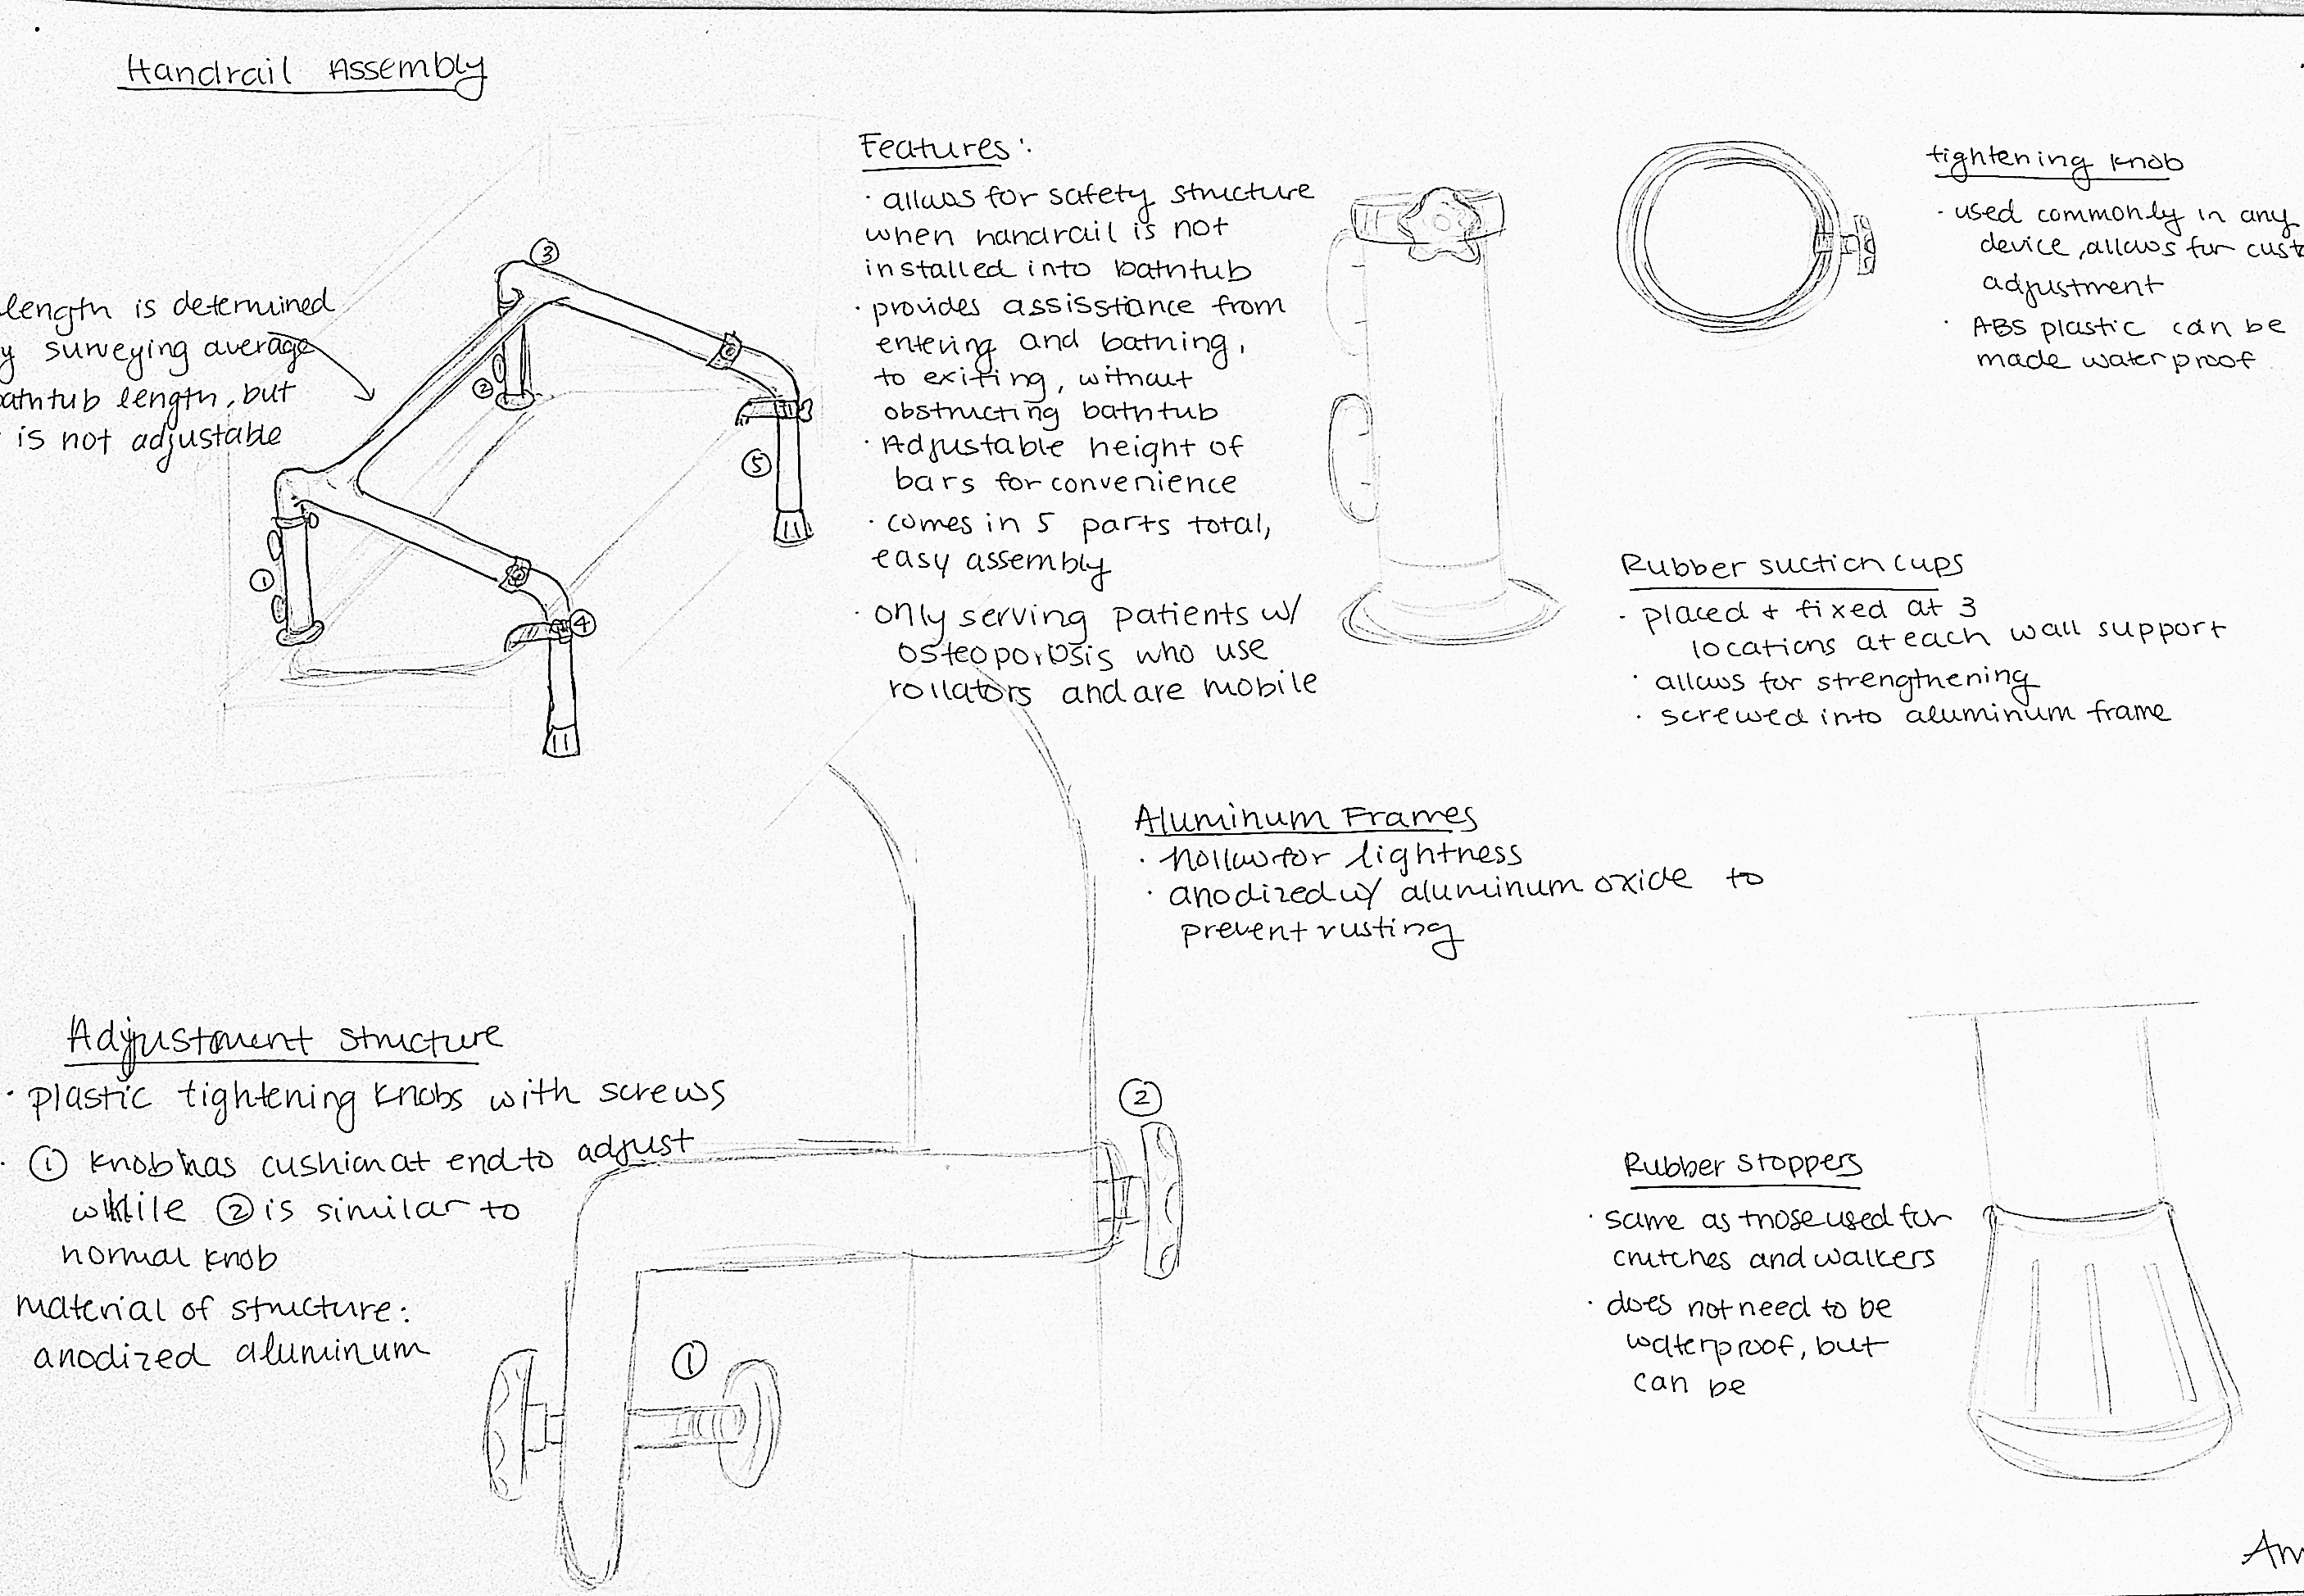 Handrail Assembly
length is determined
y surveying average
athtub length, but
is not adjustable
③
②
①
⑤
④
Features:
· allows for safety structure
when handrail is not
installed into bathtub
· provides assisstance from
entering and bathing,
to exiting, without
obstructing bathtub
· Adjustable height of
bars for convenience
· comes in 5 parts total,
easy assembly
· only serving patients w/
osteoporosis who use
rollators and are mobile
tightening knob
· used commonly in any
device, allows for cust
adjustment
· ABS plastic can be
made waterproof
Rubber suction cups
· placed + fixed at 3
locations at each wall support
· allows for strengthening
· screwed into aluminum frame
Aluminum Frames
· hollow for lightness
· anodized w/ aluminum oxide to
prevent rusting
Adjustment structure
· plastic tightening knobs with screws
· ① knob has cushion at end to adjust
while ② is similar to
normal knob
material of structure:
anodized aluminum
②
①
Rubber stoppers
· same as those used for
crutches and walkers
· does not need to be
waterproof, but
can be
Am